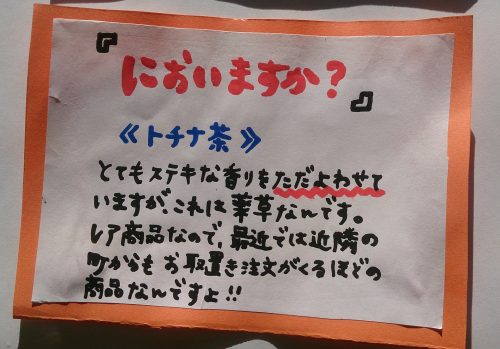 『
においますか?
』
《トチナ茶》
とてもステキな香りをただよわせて
いますが、これは薬草なんです。
レア商品なので、最近では近隣の
町からもお取置き注文がくるほどの
商品なんですよ!!